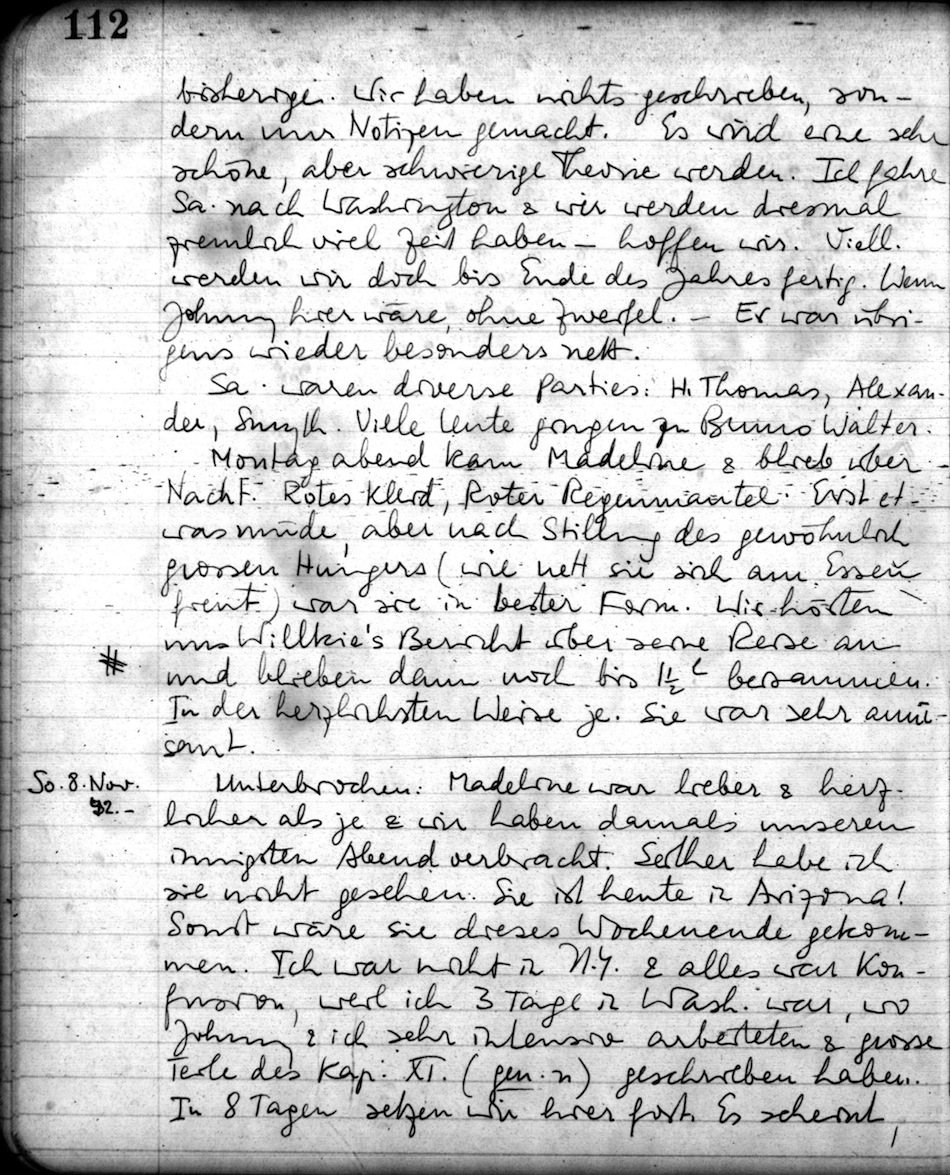 112
bisherigen. Wir haben nichts geschrieben, son-
dern nur Notizen gemacht. Es wird eine sehr
schöne, aber schwierige Theorie werden. Ich fahre
Sa. nach Washington & wir werden diesmal
ziemlich viel Zeit haben – hoffen wir. Viell.
werden wir doch bis Ende des Jahres fertig. Wenn
Johnny hier wäre, ohne Zweifel. – Er war übri-
gens wieder besonders nett.
Sa. waren diverse Parties: H. Thomas, Alexan-
der, Smyth. Viele Leute gingen zu Bruno Walter.
Montag abend kam Madeline & blieb über
Nacht. Rotes Kleid, Roter Regenmantel. Erst et-
was müde, aber nach Stillung des gewöhnlich
grossen Hungers (wie nett sie sich am Essen
freut) war sie in bester Form. Wir hörten
uns Willkie's Bericht über seine Reise an
# und blieben dann noch bis 1½ h beisammen.
In der herzlichsten Weise je. Sie war sehr amü-
sant.
So. 8. Nov. Unterbrochen: Madeline war lieber & herz-
42.- licher als je & wir haben damals unseren
innigsten Abend verbracht. Seither habe ich
sie nicht gesehen. Sie ist heute in Arizona!
Sonst wäre sie dieses Wochenende gekom-
men. Ich war nicht in N.Y. & alles war Kon-
fusion, weil ich 3 Tage in Wash. war, wo
Johnny & ich sehr intensiv arbeiteten & grosse
Teile des Kap. XI. (gen. n) geschrieben haben.
In 8 Tagen setzen wir hier fort. Es scheint